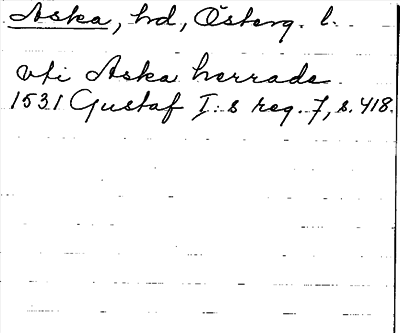 Aska, hd, Österg. l.
uti Aska herrade
1531 Gustaf I:s reg. 7, s. 418.